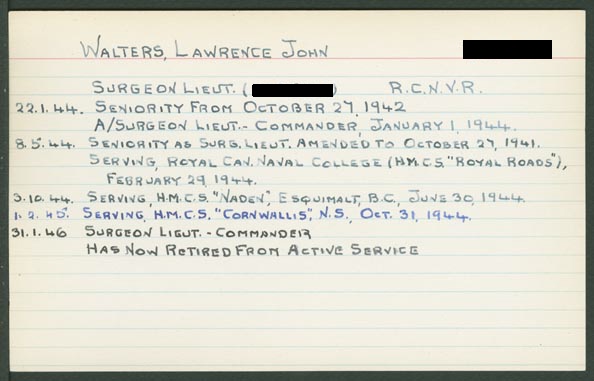 WALTERS, LAWRENCE JOHN
SURGEON LIEUT. ( ) R.C.N.V.R.
22.1.44. SENIORITY FROM OCTOBER 27, 1942
A/SURGEON LIEUT.- COMMANDER, JANUARY 1, 1944.
8.5.44. SENIORITY AS SURG. LIEUT. AMENDED TO OCTOBER 27, 1941.
SERVING, ROYAL CAN. NAVAL COLLEGE (H.M.C.S. "ROYAL ROADS"),
FEBRUARY 29, 1944.
3.10.44. SERVING, H.M.C.S. "NADEN", ESQUIMALT, B.C., JUNE 30, 1944.
1.2.45. SERVING, H.M.C.S. "CORNWALLIS", N.S., OCT. 31, 1944.
31.1.46 SURGEON LIEUT. - COMMANDER
HAS NOW RETIRED FROM ACTIVE SERVICE